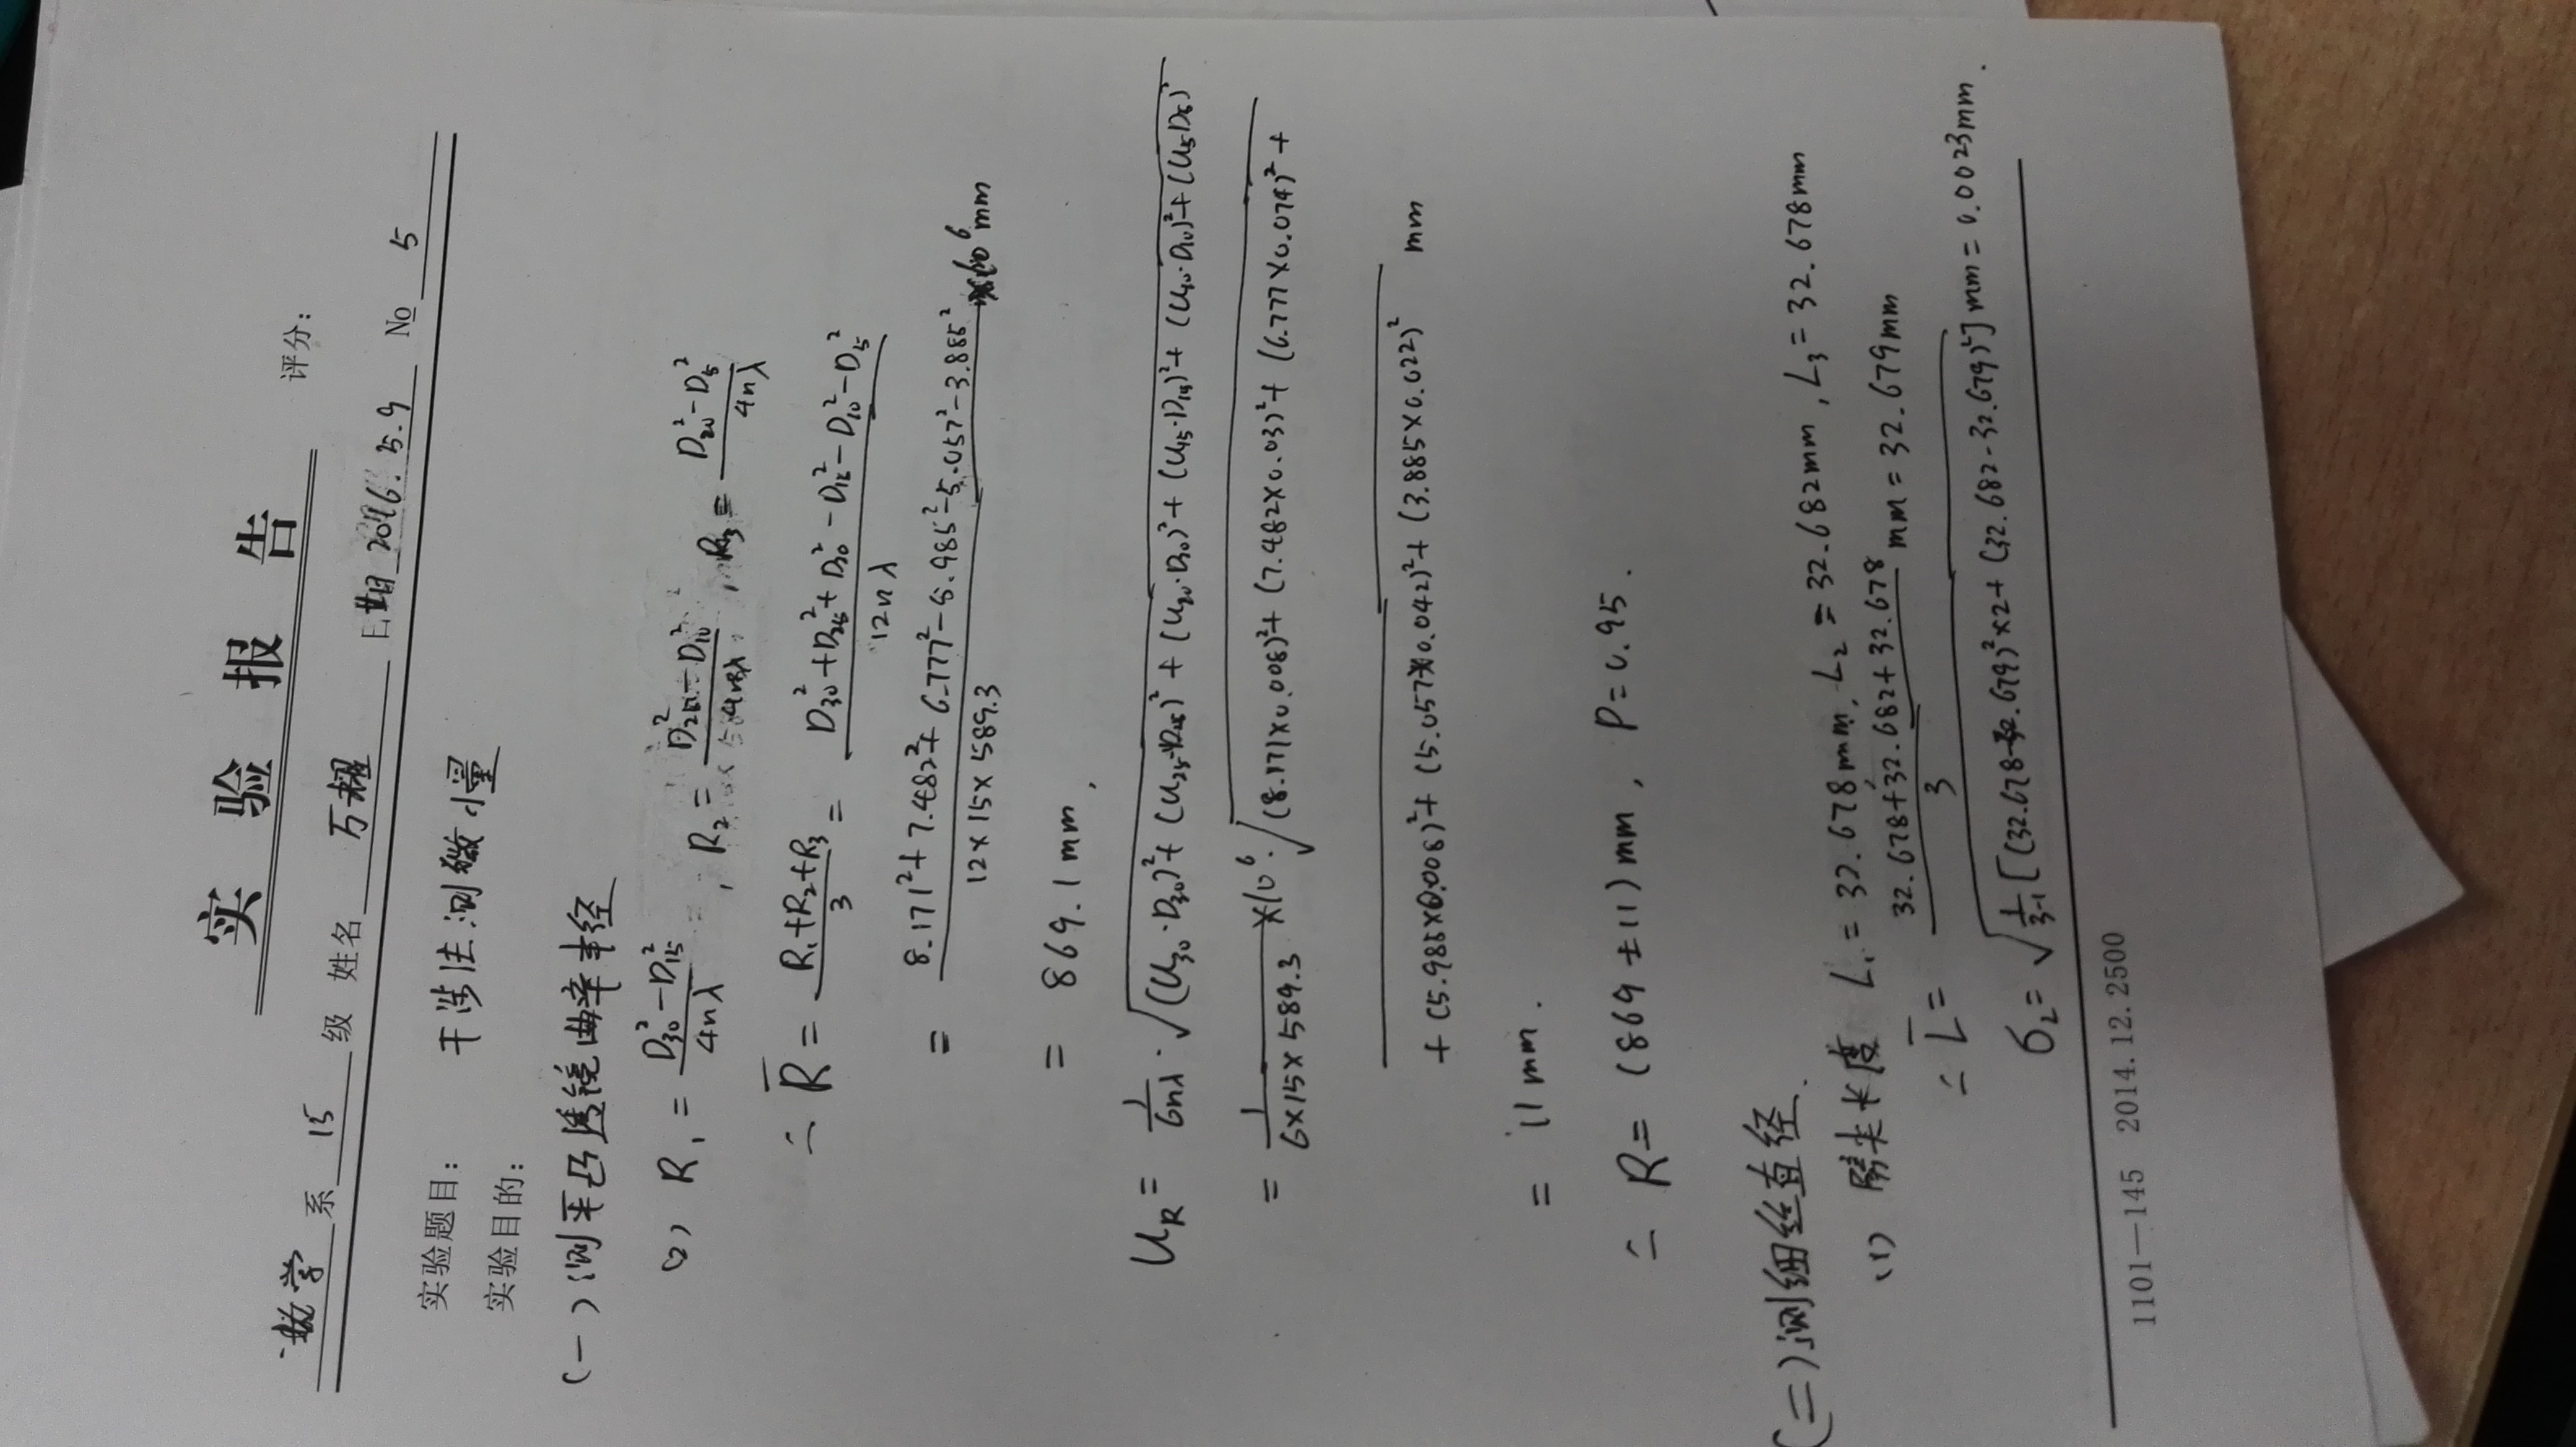 实 验 报 告
评分：
数学 系 15 级 姓名 万耀 日期 2016.5.9 No 5
实验题目： 干涉法测微小量
实验目的：
(一) 测平凸透镜曲率半径
(2) R₁ = (D₃₀² − D₁₅²)/(4nλ) , R₂ = (D₂₅² − D₁₀²)/(4nλ) , R₃ = (D₂₀² − D₅²)/(4nλ)
∴ R̄ = (R₁+R₂+R₃)/3 = (D₃₀² + D₂₅² + D₂₀² − D₁₅² − D₁₀² − D₅²)/(12nλ)
= (8.171² + 7.482² + 6.777² − 5.985² − 5.057² − 3.885²)/(12×15×589.3) ×10⁶ mm
= 869.1 mm,
U_R = 1/(6nλ) · √((U₃₀·D₃₀)² + (U₂₅·D₂₅)² + (U₂₀·D₂₀)² + (U₁₅·D₁₅)² + (U₁₀·D₁₀)² + (U₅D₅)²)
= 1/(6×15×589.3) ×10⁶ · √((8.171×0.008)² + (7.482×0.03)² + (6.777×0.074)² +
+ (5.985×0.008)² + (5.057×0.042)² + (3.885×0.022)²) mm
= 11 mm.
∴ R = (869 ± 11) mm , P = 0.95.
(二) 测细丝直径.
(1) 劈尖长度 L₁ = 32.678 mm, L₂ = 32.682 mm, L₃ = 32.678 mm
∴ L̄ = (32.678+32.682+32.678)/3 mm = 32.679 mm
σ_L = √(1/(3-1) [(32.678-32.679)²×2 + (32.682-32.679)²]) mm = 0.0023 mm.
1101—145 2014.12.2500